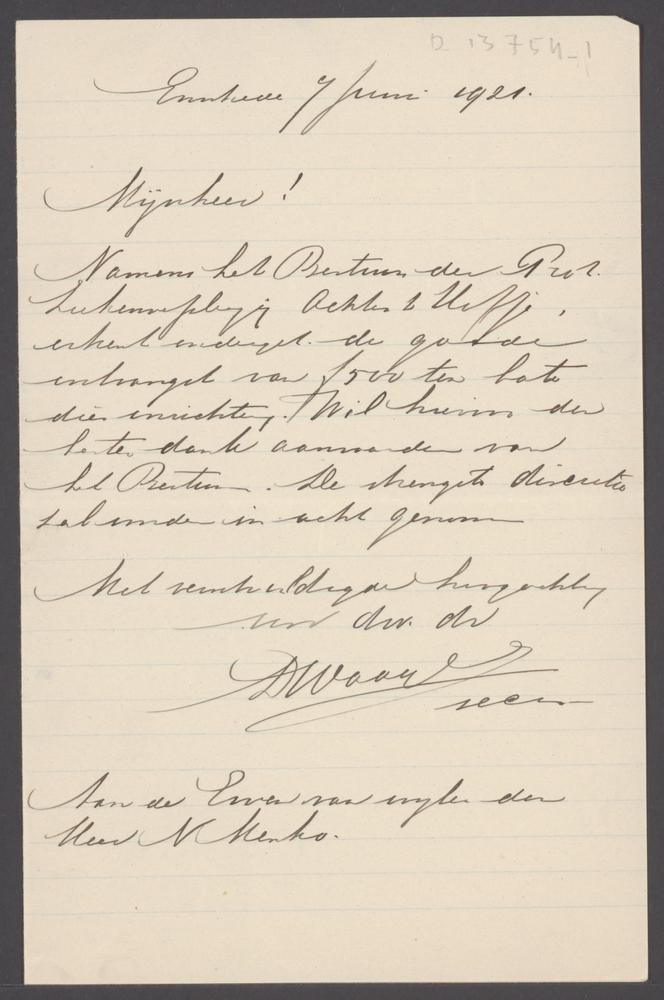 D 13754-1
Enschede 7 Juni 1921.
Mijnheer!
Namens het Bestuur der Prot.
Ziekenverpleging Achter 't Hofje,
erkent onderget 'de goede
ontvangst van f 500 ten bate
dier inrichting. Wil hiervoor den
besten dank aanvaarden van
het Bestuur. De strengste discretie
zal worden in acht genomen
Met verschuldigde hoogachting
uw dw. dr
secr
Aan de Erven van wijlen den
Heer N Menko.